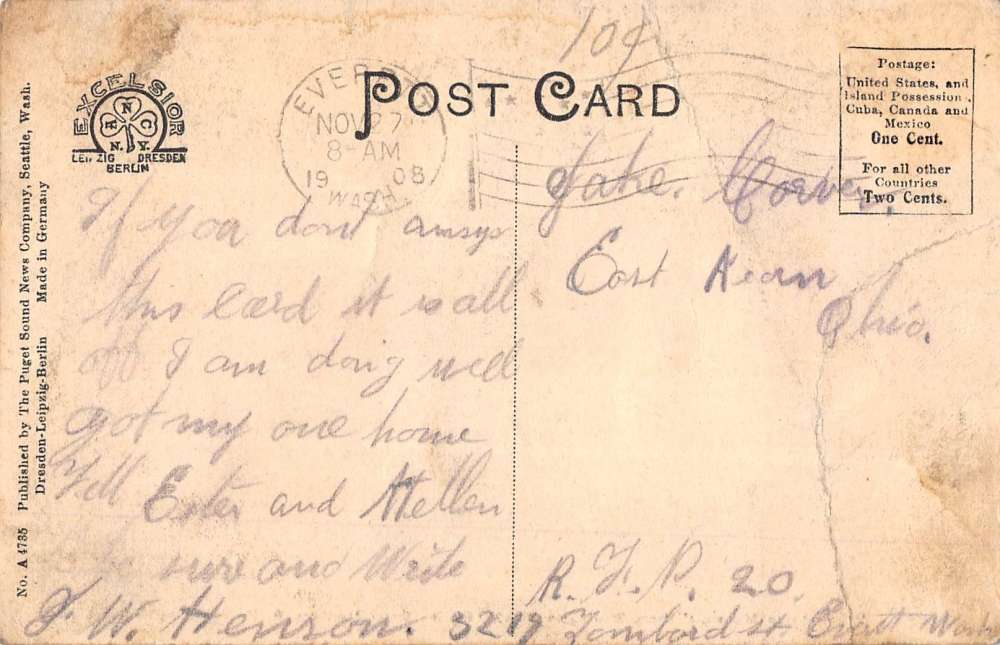 10¢
POST CARD
EXCELSIOR
N
H C
N.Y.
LEIPZIG DRESDEN
BERLIN
EVERETT
NOV 27
8-AM
1908
WASH.
Postage:
United States, and
Island Possessions,
Cuba, Canada and
Mexico
One Cent.
For all other
Countries
Two Cents.
No. A 4735 Published by The Puget Sound News Company, Seattle, Wash.
Dresden-Leipzig-Berlin Made in Germany
If you dont
this card it is all
off I am doing well
got my one home
Tell Ester and Hellen
sure and Write
F. W. Henson. 3219 Lombard st. Everett Wash
Jake.
East
Ohio.
R. F. D. 20.